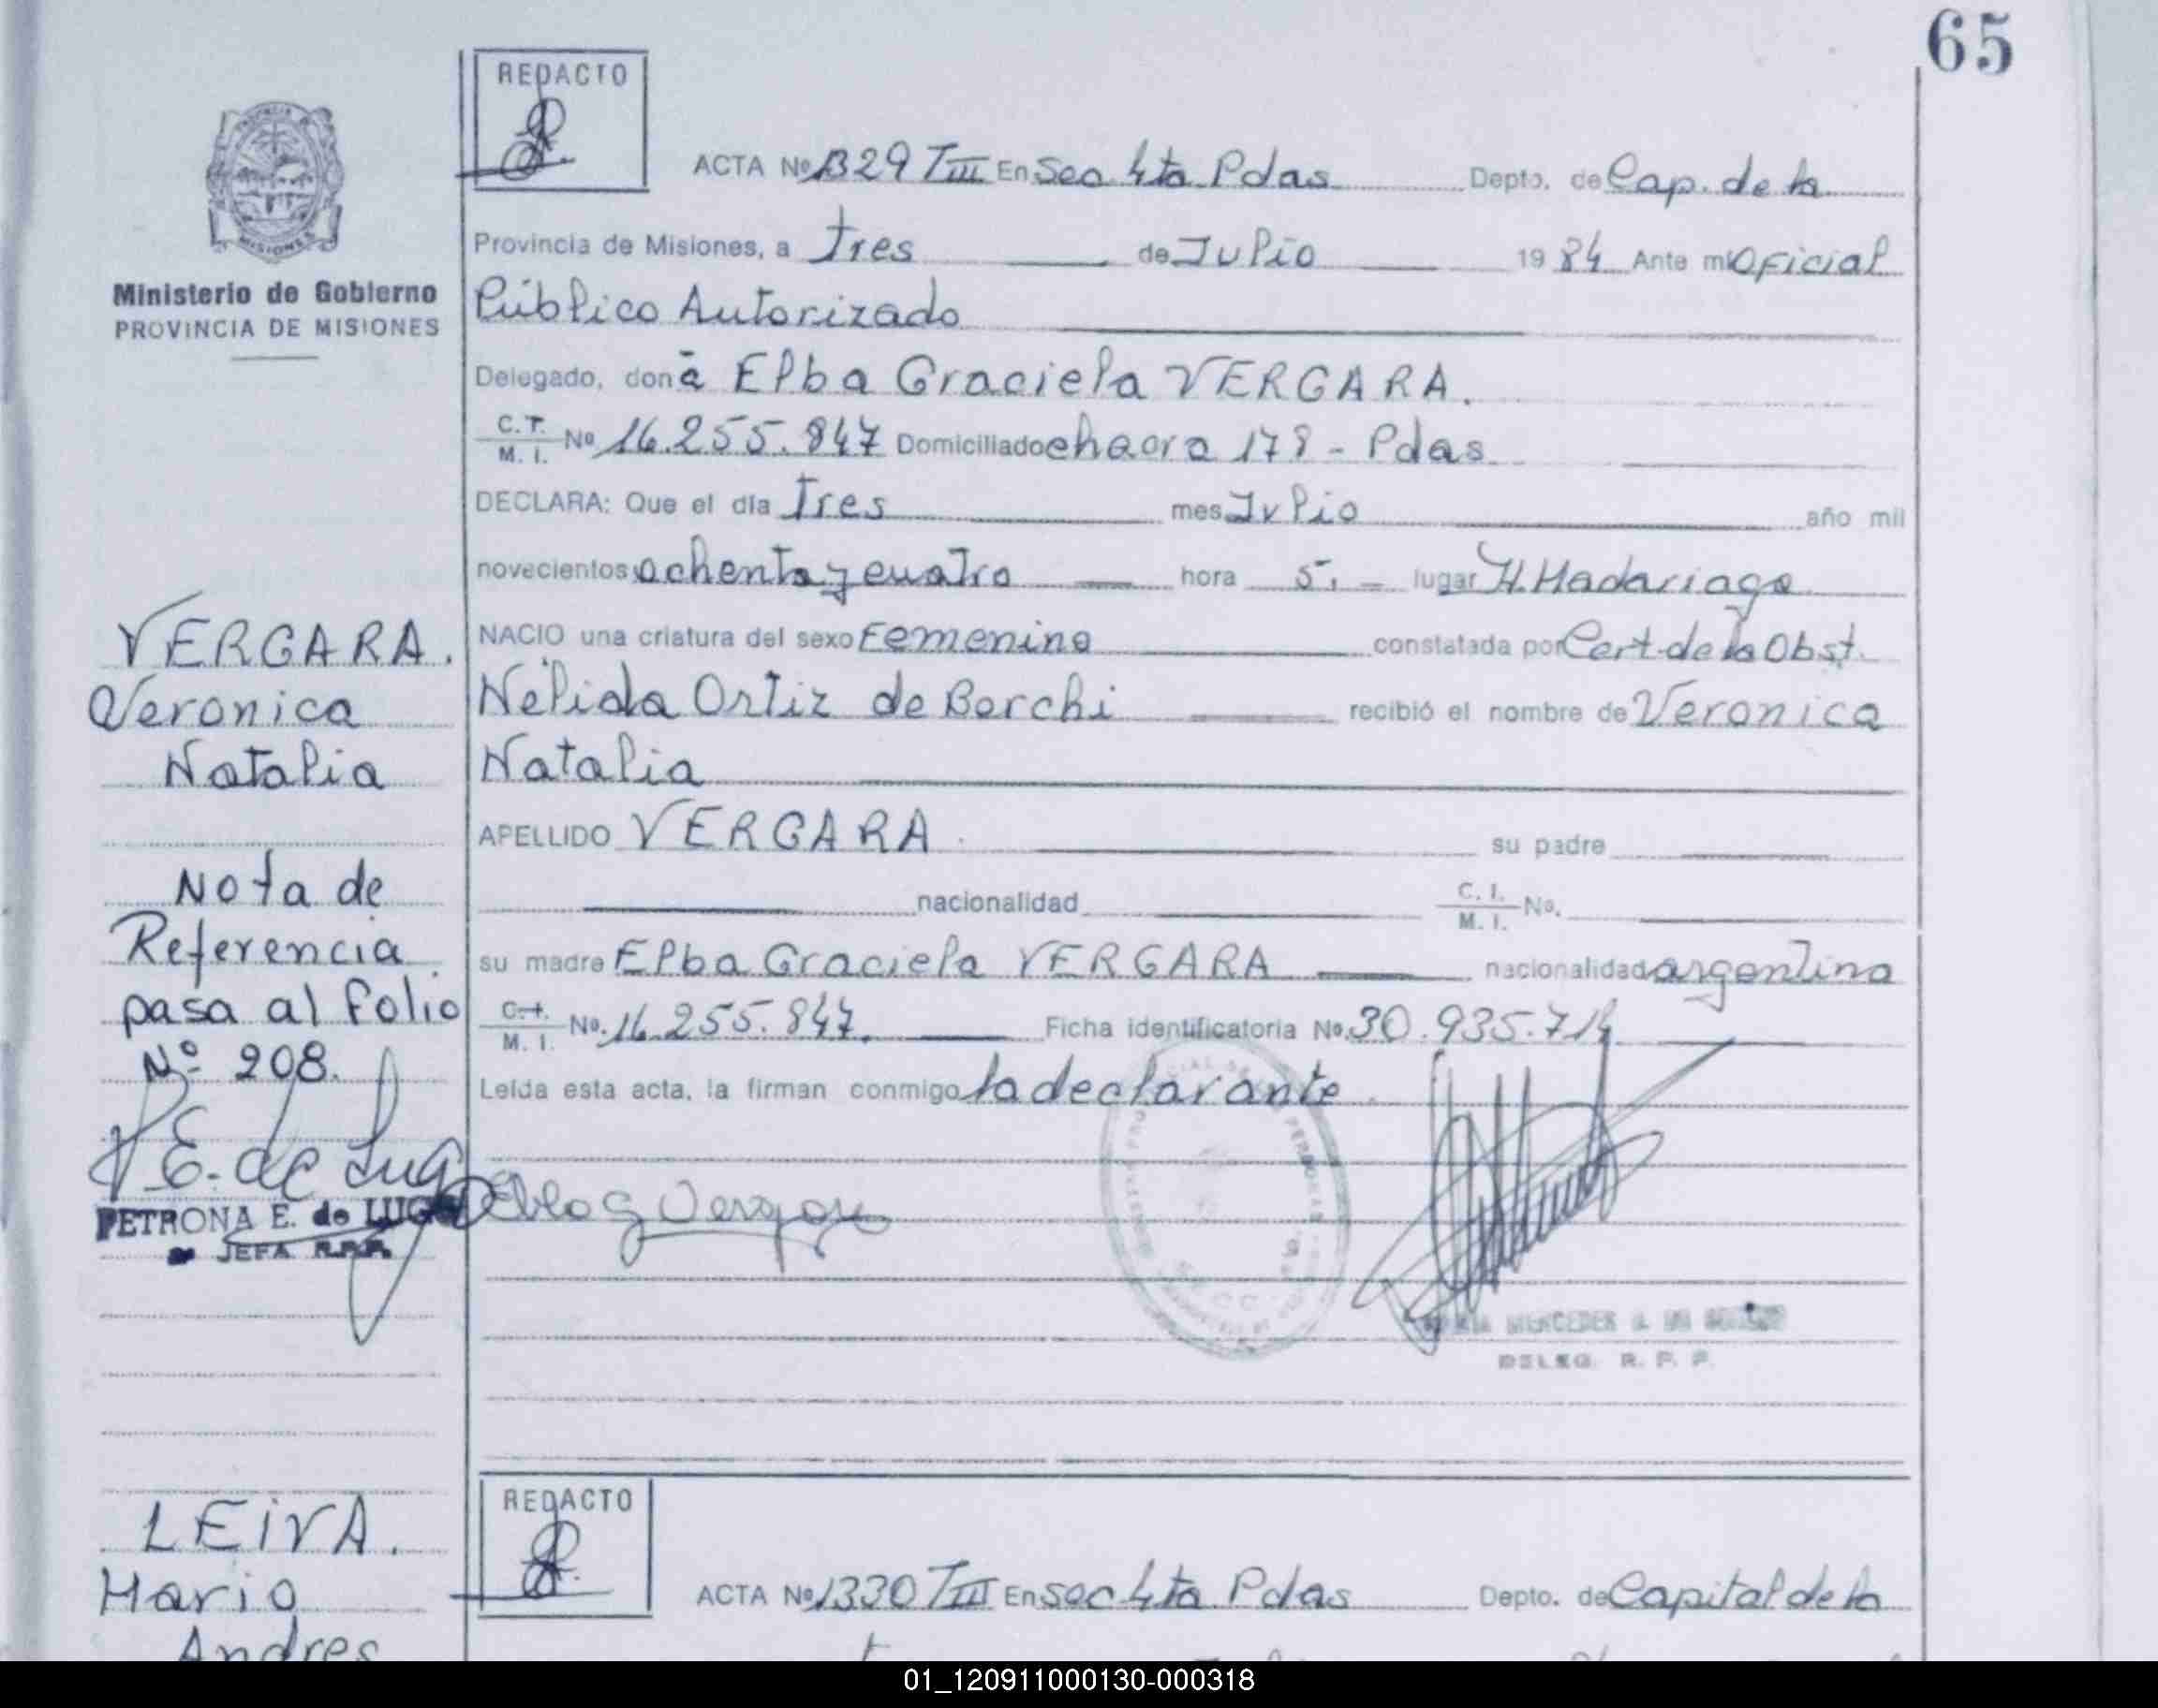 65
REDACTO
ACTA Nº 1329 TIII En Sec 4ta Pdas Depto. de Cap. de la
Provincia de Misiones, a Tres de Julio 1984 Ante mi Oficial
Público Autorizado
Delegado, doña Elba Graciela VERGARA.
C.I. M. I. Nº 16.255.847 Domiciliado chacra 178 - Pdas
DECLARA: Que el día Tres mes Julio año mil
novecientos ochenta y cuatro hora 5. - lugar H. Madariaga
NACIO una criatura del sexo Femenino constatada por Cert. de la Obst.
Nélida Ortiz de Borchi recibió el nombre de Veronica
Natalia
APELLIDO VERGARA su padre
nacionalidad C. I. M. I. No.
su madre Elba Graciela VERGARA nacionalidad argentina
C.I. M. I. No. 16.255.847. Ficha identificatoria No. 30.935.714
Leída esta acta, la firman conmigo la declarante
DELEG. R. P. P.
MISIONES
Ministerio de Gobierno
PROVINCIA DE MISIONES
VERGARA.
Veronica
Natalia
Nota de
Referencia
pasa al folio
Nº 208.
E. de Lugo
PETRONA E. de LUGO
JEFA R.P.P.
LEIVA.
Mario
Andres
REDACTO
ACTA Nº 1330 TIII En Sec 4ta Pdas Depto. de Capital de la
01_120911000130-000318